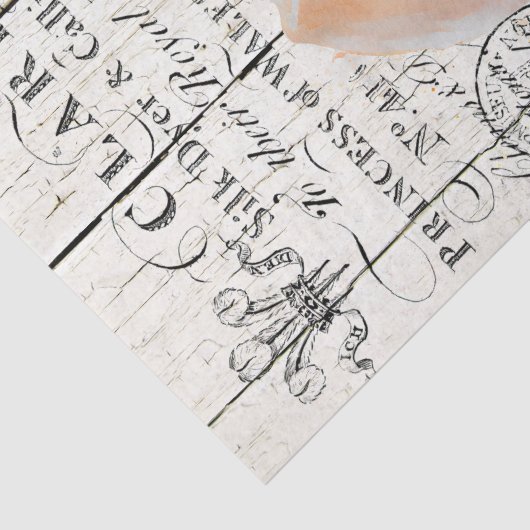 DIEN
ICH
CLAR
Silk Dyer & Cali
To their Royal
PRINCESS of WALE
No. 41